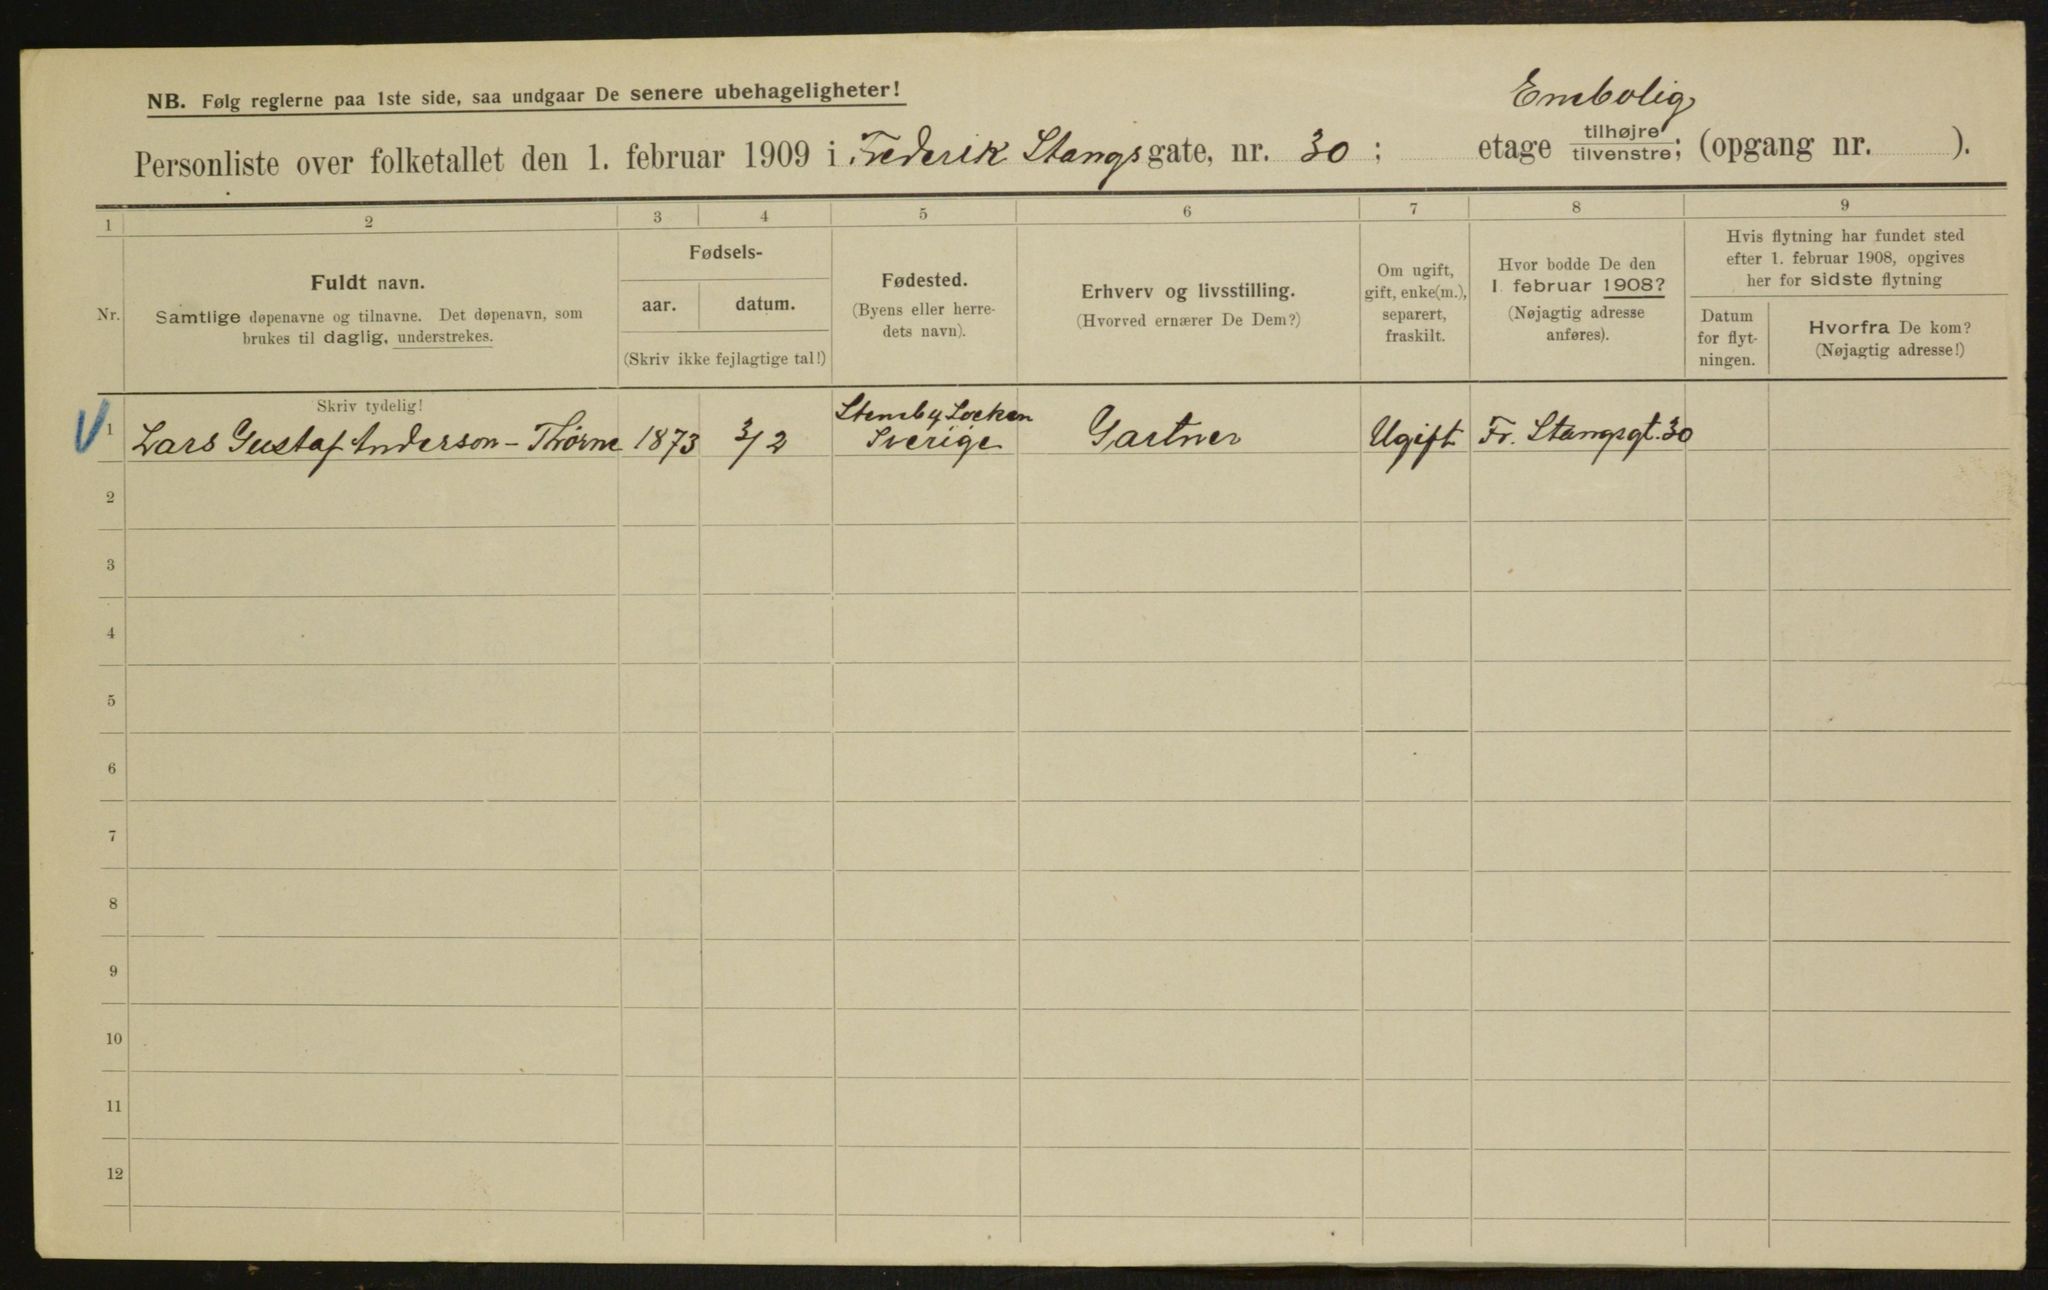 NB. Følg reglerne paa 1ste side, saa undgaar De senere ubehageligheter!
Enebolig
Personliste over folketallet den 1. februar 1909 i Frederik Stangs gate, nr. 30 ; etage tilhøjre/tilvenstre; (opgang nr. ).
1 2 3 4 5 6 7 8 9
Nr.
Fuldt navn.
Samtlige døpenavne og tilnavne. Det døpenavn, som
brukes til daglig, understrekes.
Fødsels-
aar. datum.
(Skriv ikke fejlagtige tal!)
Fødested.
(Byens eller herre-
dets navn).
Erhverv og livsstilling.
(Hvorved ernærer De Dem?)
Om ugift,
gift, enke(m.),
separert,
fraskilt.
Hvor bodde De den
1. februar 1908?
(Nøjagtig adresse
anføres).
Hvis flytning har fundet sted
efter 1. februar 1908, opgives
her for sidste flytning
Datum
for flyt-
ningen.
Hvorfra De kom?
(Nøjagtig adresse!)
Skriv tydelig!
1 Lars Gustaf Anderson - Thørne 1873 3/2 Stenby Socken
Sverige Gartner Ugift Fr. Stangsgt. 30
2
3
4
5
6
7
8
9
10
11
12